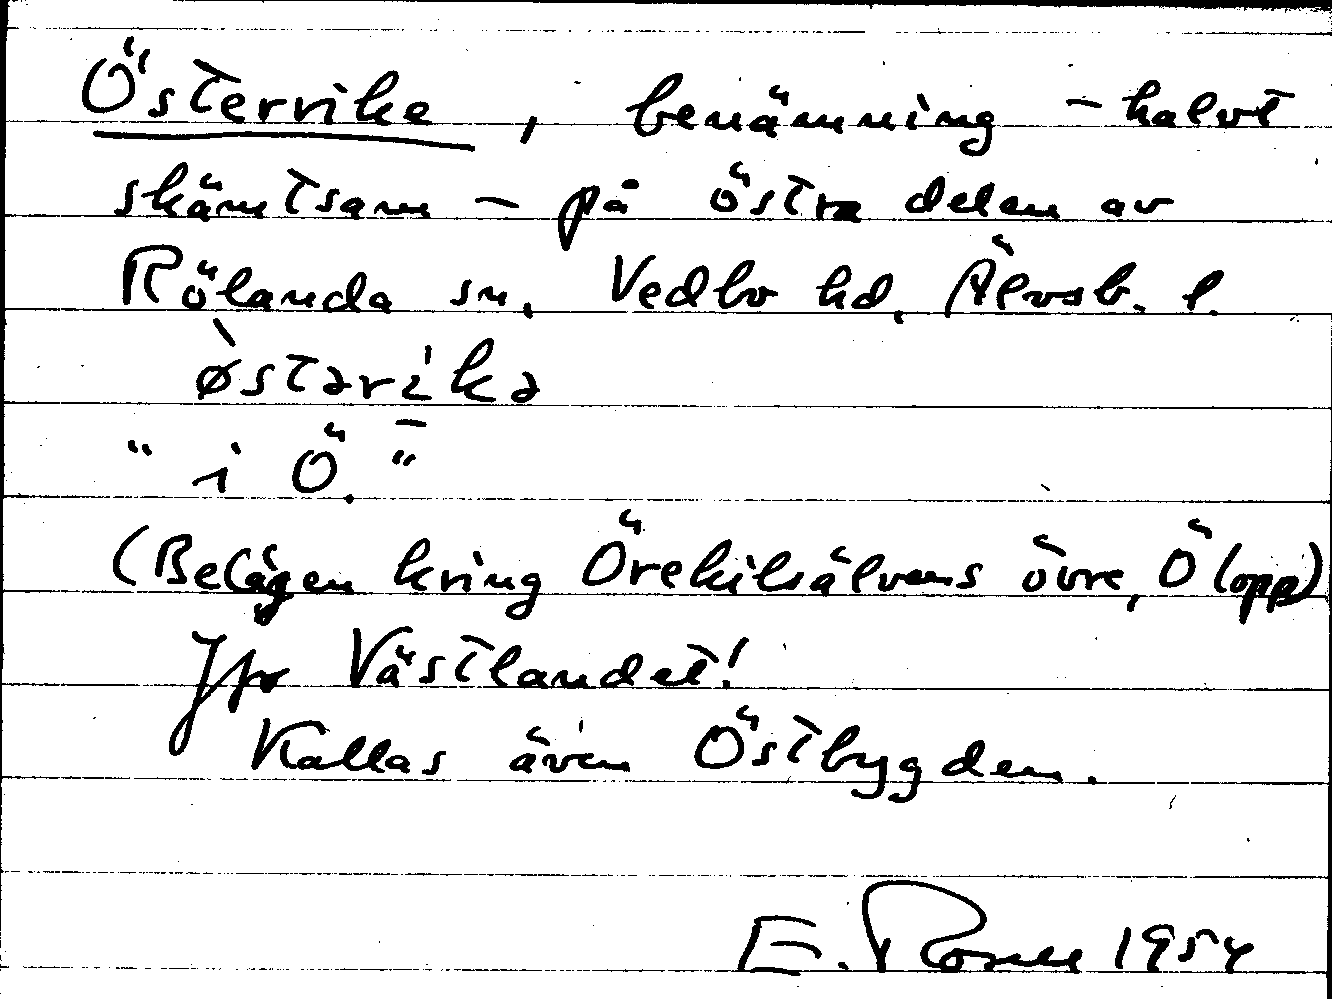 Östervike, benämning – halvt
skämtsam – på östra delen av
Rölanda sn, Vedbo hd, Älvsb. l.
østərikə
" i Ö. "
(Belägen kring Örekilsälvens övre, Ö (opp)
Jfr Västlandet!
Kallas även Östbygden.
E. Rosell 1954